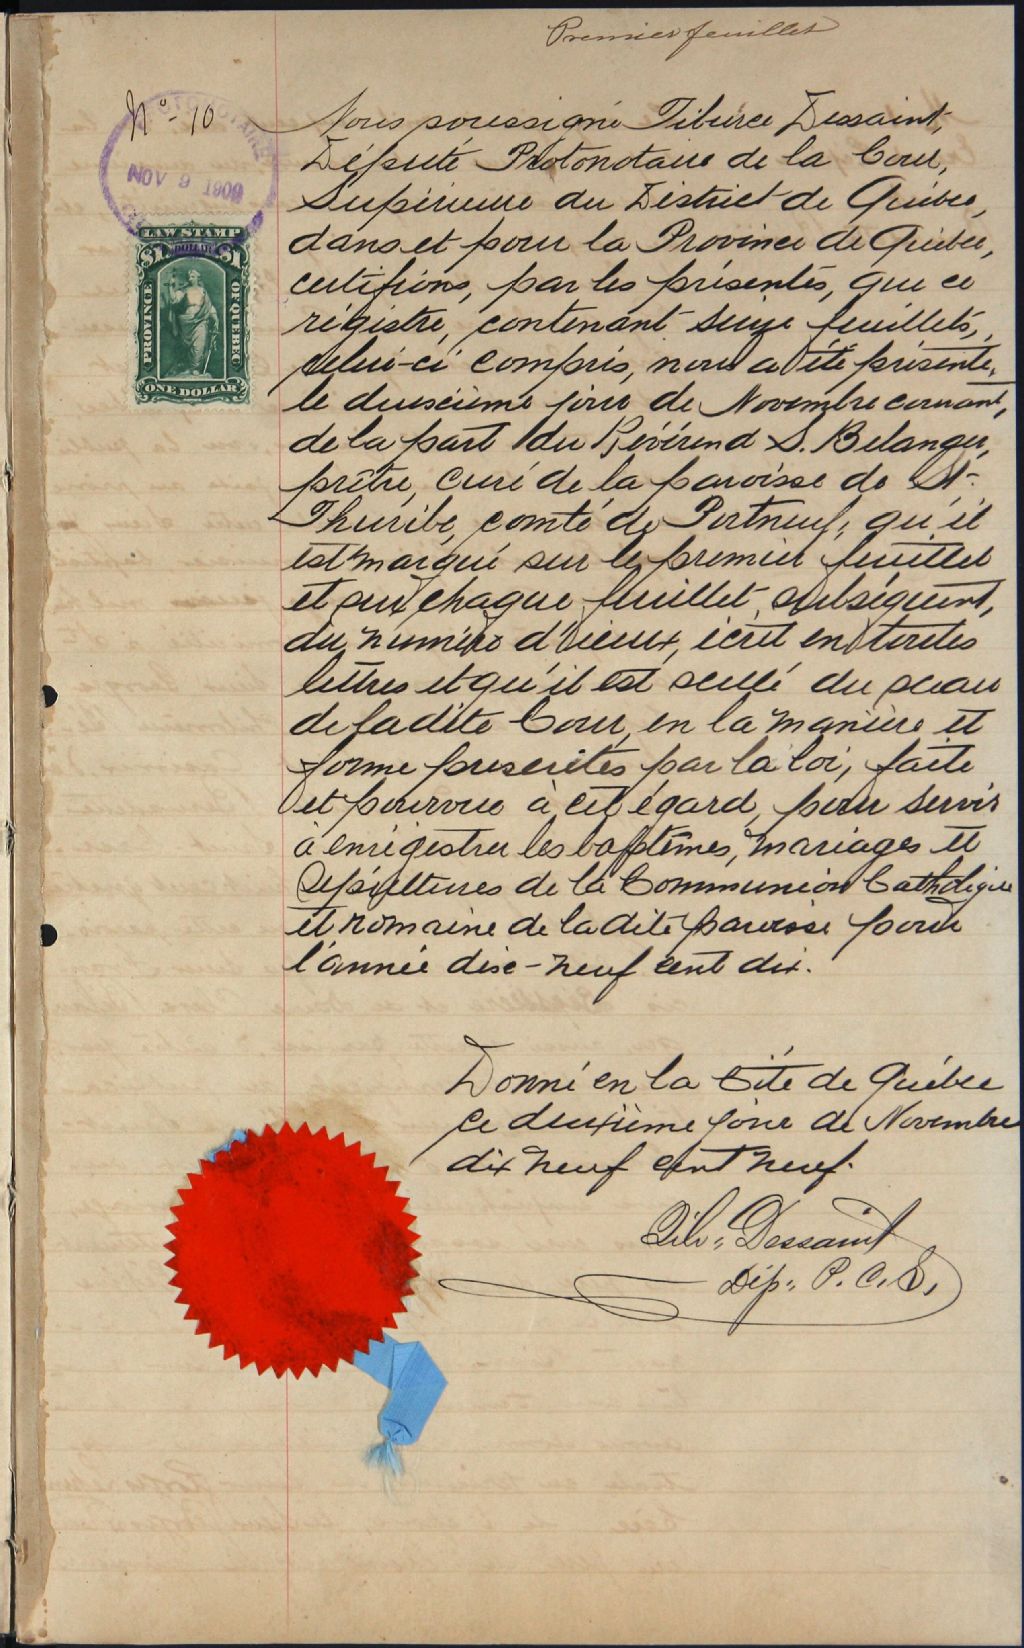 Premier feuillet
No - 10
NOV 9 1909
LAW STAMP
$1 DOLLAR $1
PROVINCE OF QUEBEC
ONE DOLLAR
Nous soussigné Tiburce Dessaint,
Député Protonotaire de la Cour,
Supérieure du District de Québec,
dans et pour la Province de Québec,
certifions, par les présentes, que ce
régistre, contenant seize feuillets,
celui-ci compris, nous a été présenté,
le deuxième jour de Novembre courant,
de la part du Révérend S. Belanger,
prêtre, curé de la paroisse de St-
Thuribe, comté de Portneuf, qu'il
est marqué sur le premier feuillet
et sur chaque feuillet subséquent,
du numéro d'iceux, écrit en toutes
lettres et qu'il est scellé du sceau
de ladite Cour, en la manière et
forme prescrites par la loi, faite
et pourvue à cet égard, pour servir
à enrégistrer les baptêmes, mariages et
Sépultures de la Communion Catholique
et romaine de la dite paroisse pour
l'année dix-neuf cent dix.
Donné en la Cité de Québec
ce deuxième jour de Novembre
dix neuf cent neuf.
Tib. Dessaint
Dép. P. C. S.